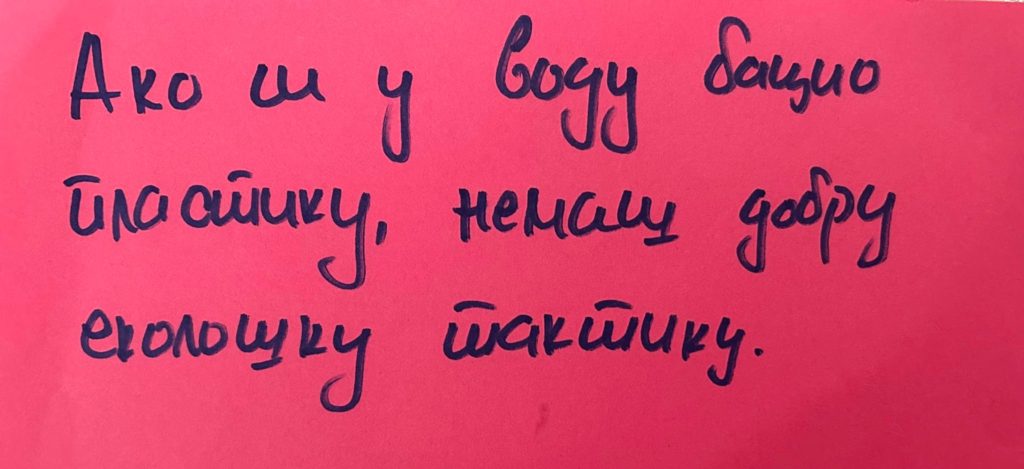 Ако си у воду бацио
пластику, немаш добру
еколошку тактику.